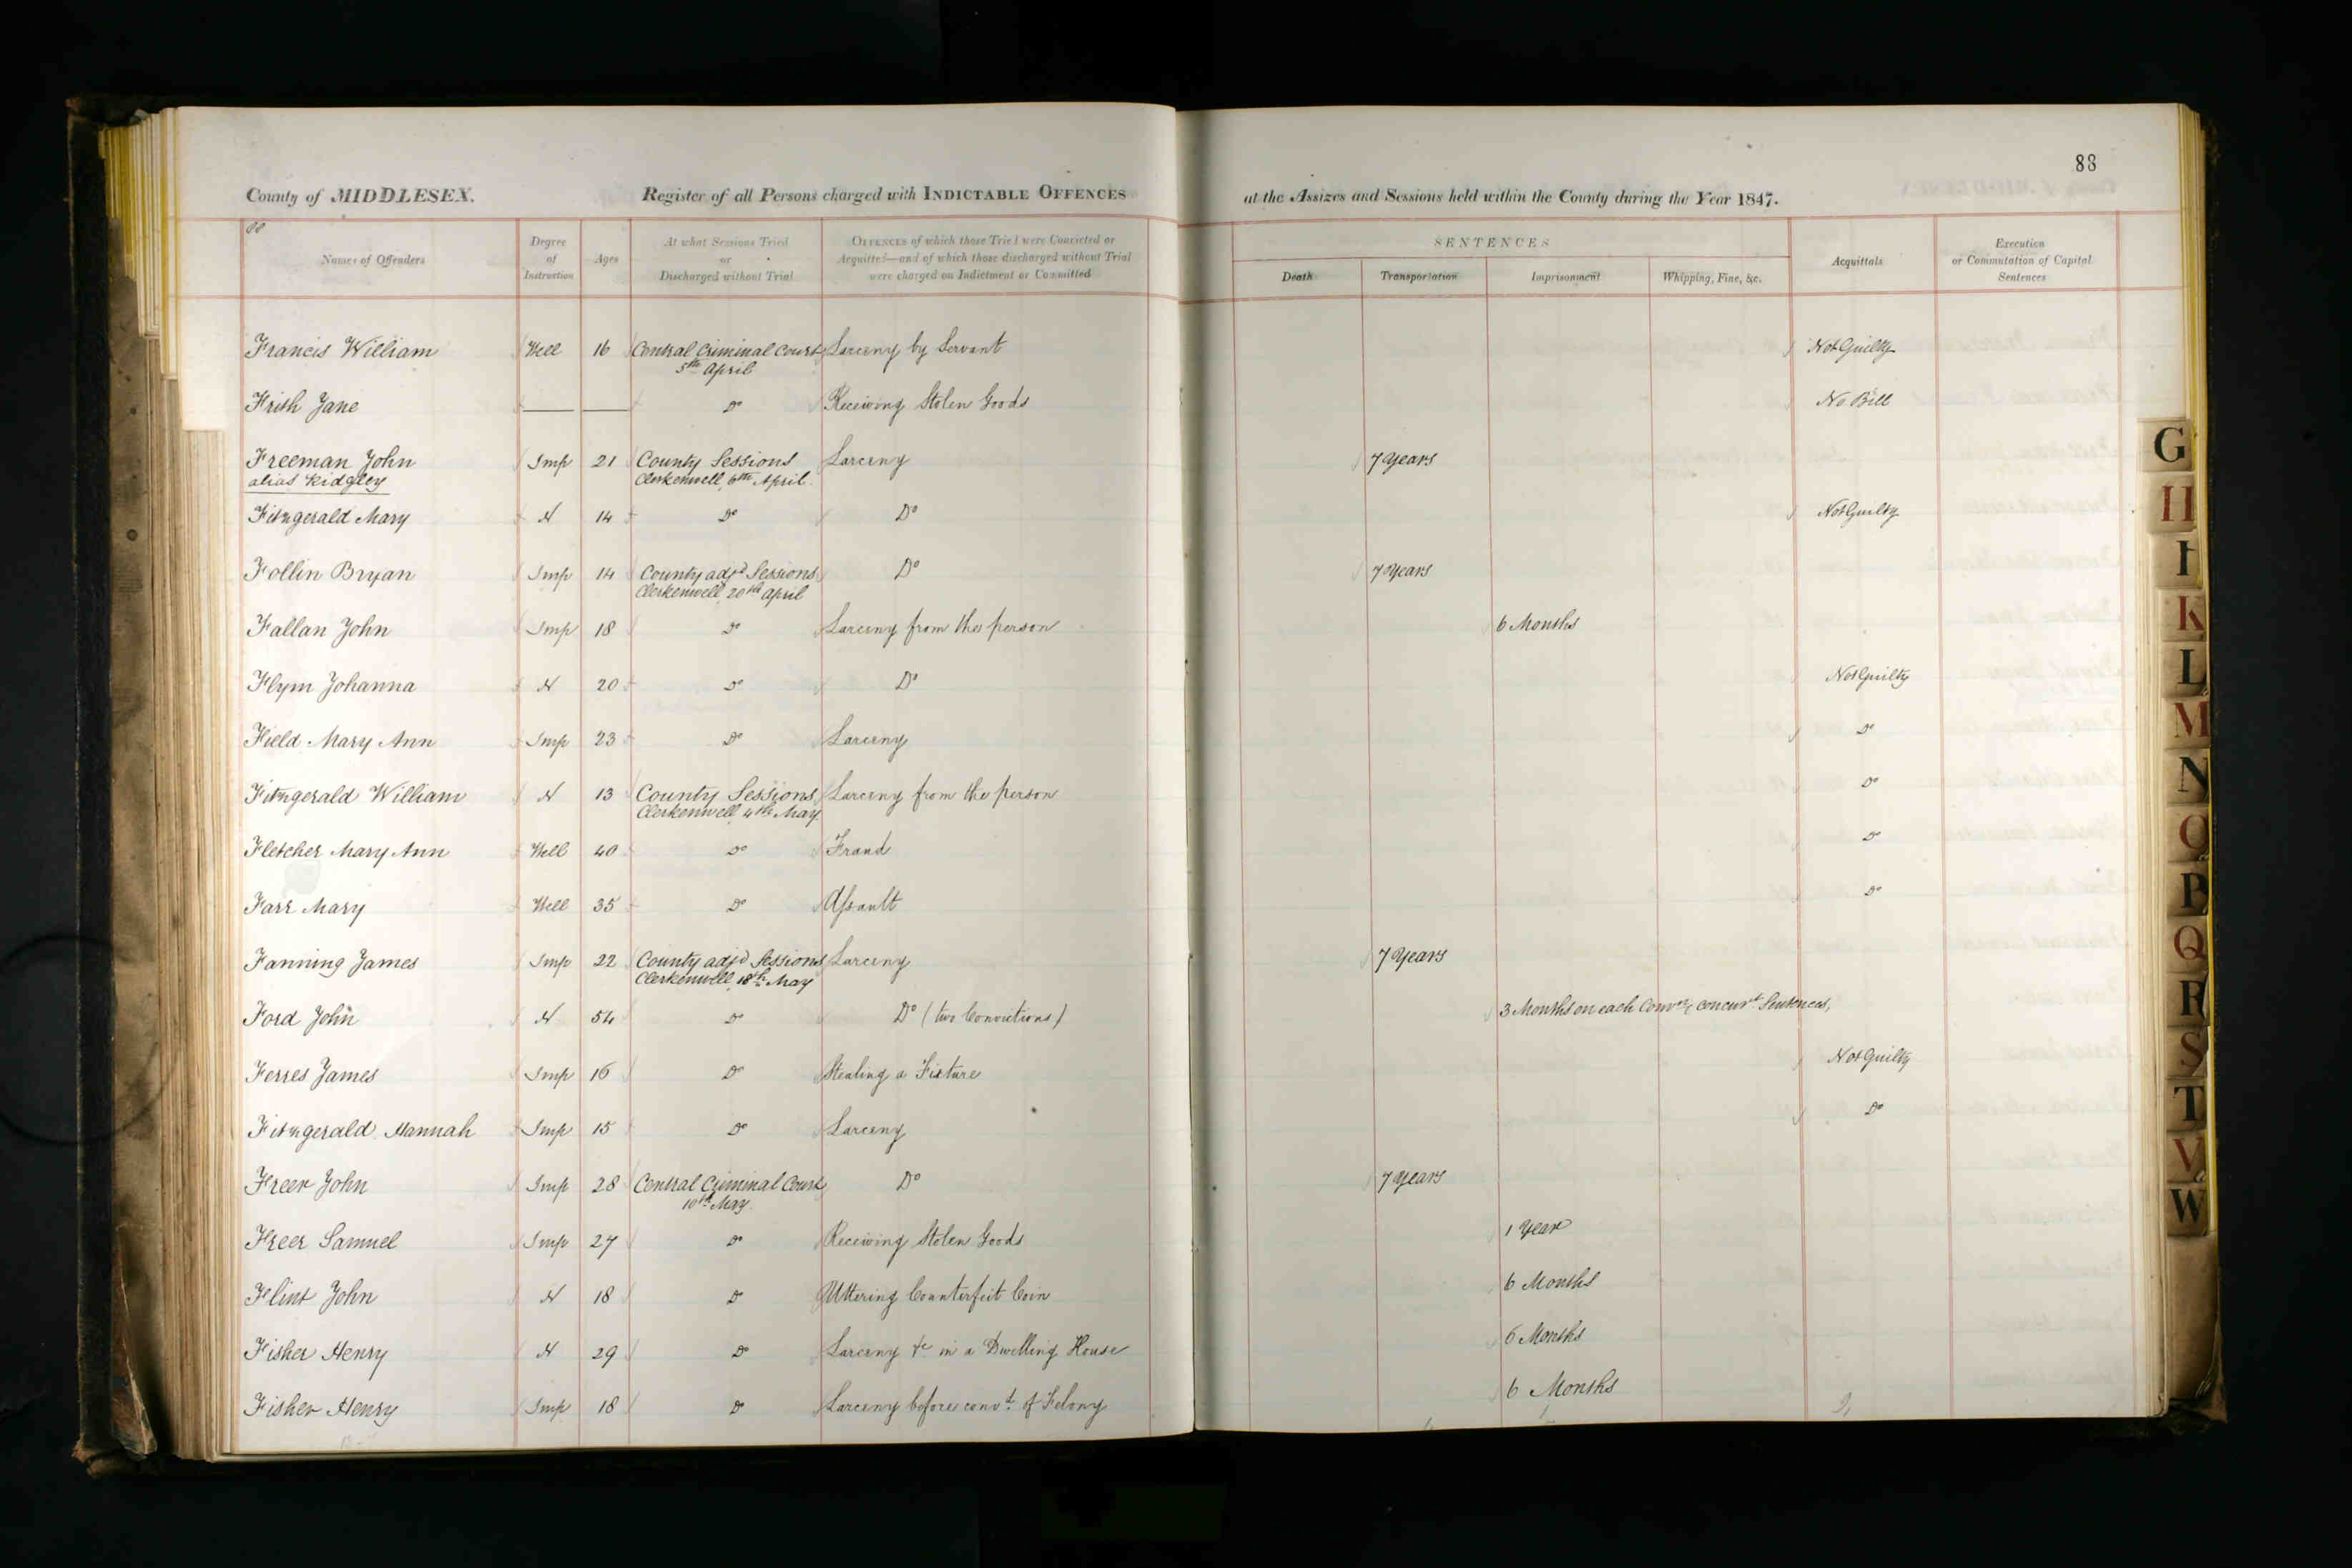 88
County of MIDDLESEX. Register of all Persons charged with INDICTABLE OFFENCES at the Assizes and Sessions held within the County during the Year 1847.
Names of Offenders
Degree of Instruction
Ages
At what Sessions Tried or Discharged without Trial
OFFENCES of which those Tried were Convicted or Acquitted—and of which those discharged without Trial were charged on Indictment or Committed
SENTENCES
Death
Transportation
Imprisonment
Whipping, Fine, &c.
Acquittals
Execution or Commutation of Capital Sentences
Francis William Well 16 Central Criminal Court Larceny by Servant Not Guilty
5th April
Frith Jane — — Do Receiving Stolen Goods No Bill
Freeman John Imp 21 County Sessions Larceny 7 Years
alias Kidgley Clerkenwell 6th April
Fitzgerald Mary N 14 Do Do Not Guilty
Follin Bryan Imp 14 County adjd Sessions Do 7 Years
Clerkenwell 20th April
Fallan John Imp 18 Do Larceny from the person 6 Months
Flynn Johanna N 20 Do Do Not Guilty
Field Mary Ann Imp 23 Do Larceny Do
Fitzgerald William N 13 County Sessions Larceny from the person Do
Clerkenwell 4th May
Fletcher Mary Ann Well 40 Do Fraud Do
Farr Mary Well 35 Do Assault Do
Fanning James Imp 22 County adjd Sessions Larceny 7 Years
Clerkenwell 18th May
Ford John N 54 Do Do (two Convictions) 3 Months on each Convn, concurt Sentences,
Ferres James Imp 16 Do Stealing a Fixture Not Guilty
Fitzgerald Hannah Imp 15 Do Larceny Do
Freer John Imp 28 Central Criminal Court Do 7 Years
10th May
Freer Samuel Imp 27 Do Receiving Stolen Goods 1 Year
Flint John N 18 Do Uttering Counterfeit Coin 6 Months
Fisher Henry N 29 Do Larceny &c in a Dwelling House 6 Months
Fisher Henry Imp 18 Do Larceny before convd of Felony 6 Months
G
H
I
K
L
M
N
O
P
Q
R
S
T
V
W